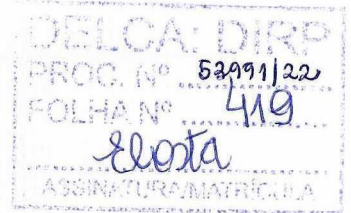 DELCA: DIRP
PROC. Nº 52991/22
FOLHA Nº 419
Elosta
ASSINATURA/MATRÍCULA